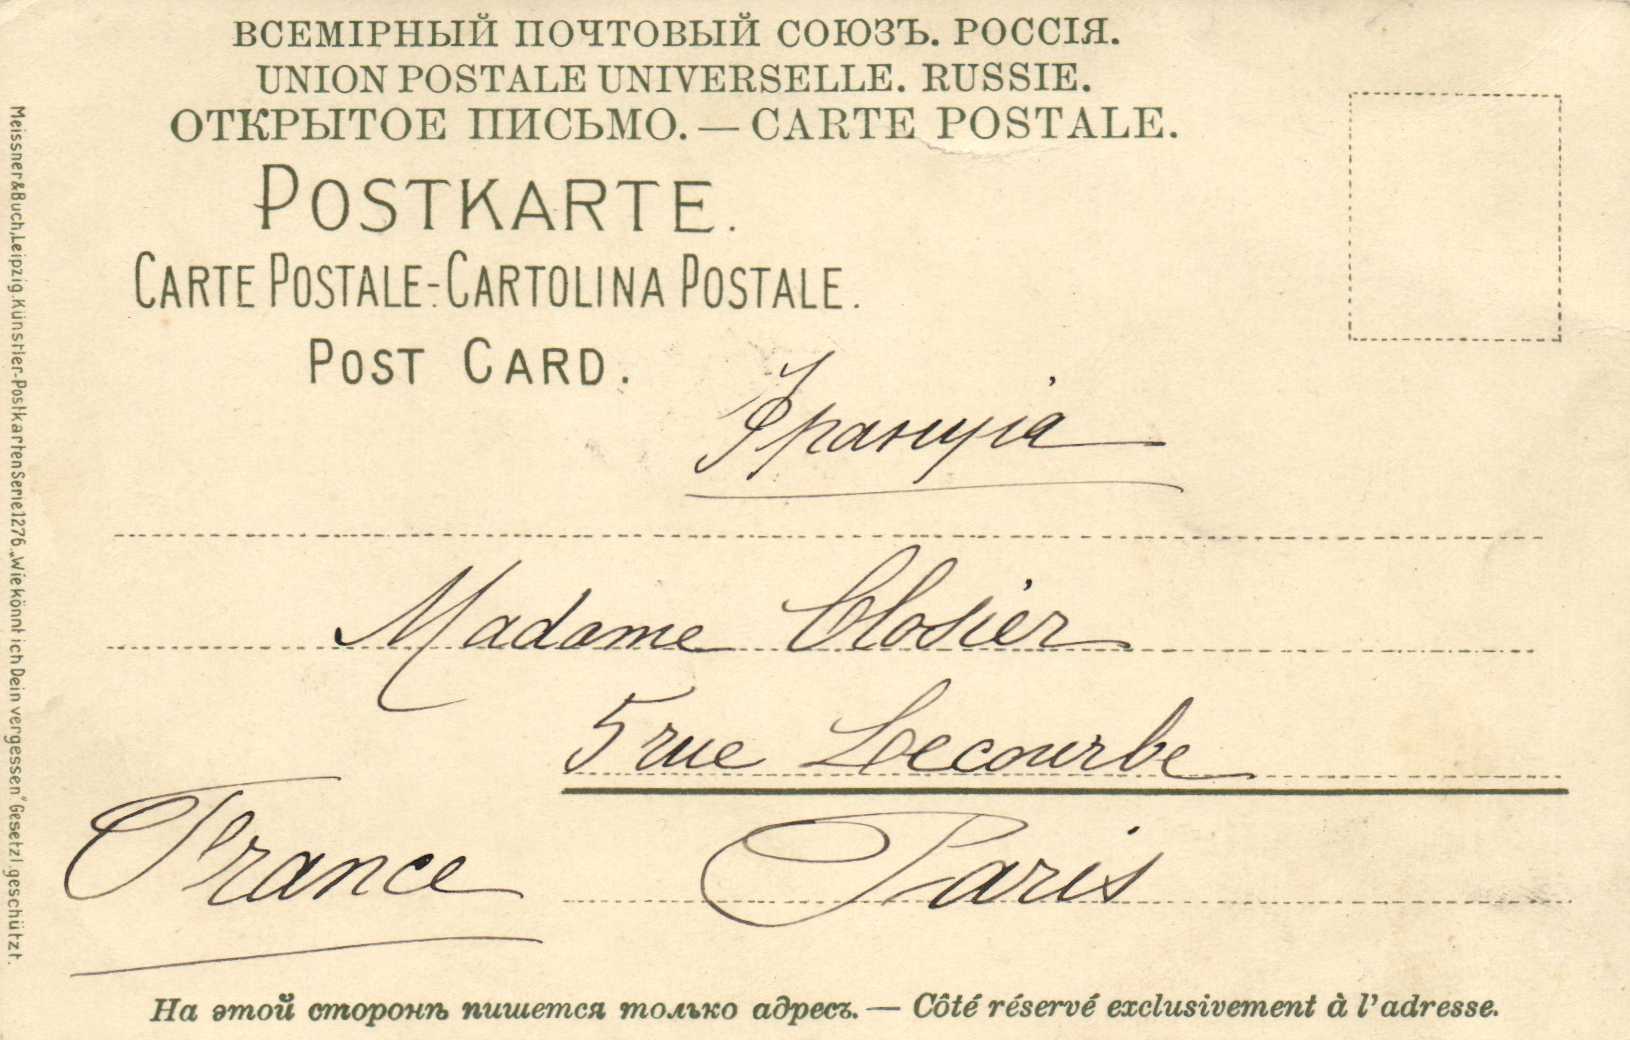 ВСЕМІРНЫЙ ПОЧТОВЫЙ СОЮЗЪ. РОССІЯ.
UNION POSTALE UNIVERSELLE. RUSSIE.
ОТКРЫТОЕ ПИСЬМО. — CARTE POSTALE.
POSTKARTE.
CARTE POSTALE-CARTOLINA POSTALE.
POST CARD.
Франція
Madame Closier
5 rue Lecourbe
Paris
France
На этой сторонѣ пишется только адресъ. — Côté réservé exclusivement à l'adresse.
Meissner & Buch, Leipzig. Künstler-Postkarten Serie 1276 „Wie könnt ich Dein vergessen" Gesetzl. geschützt.